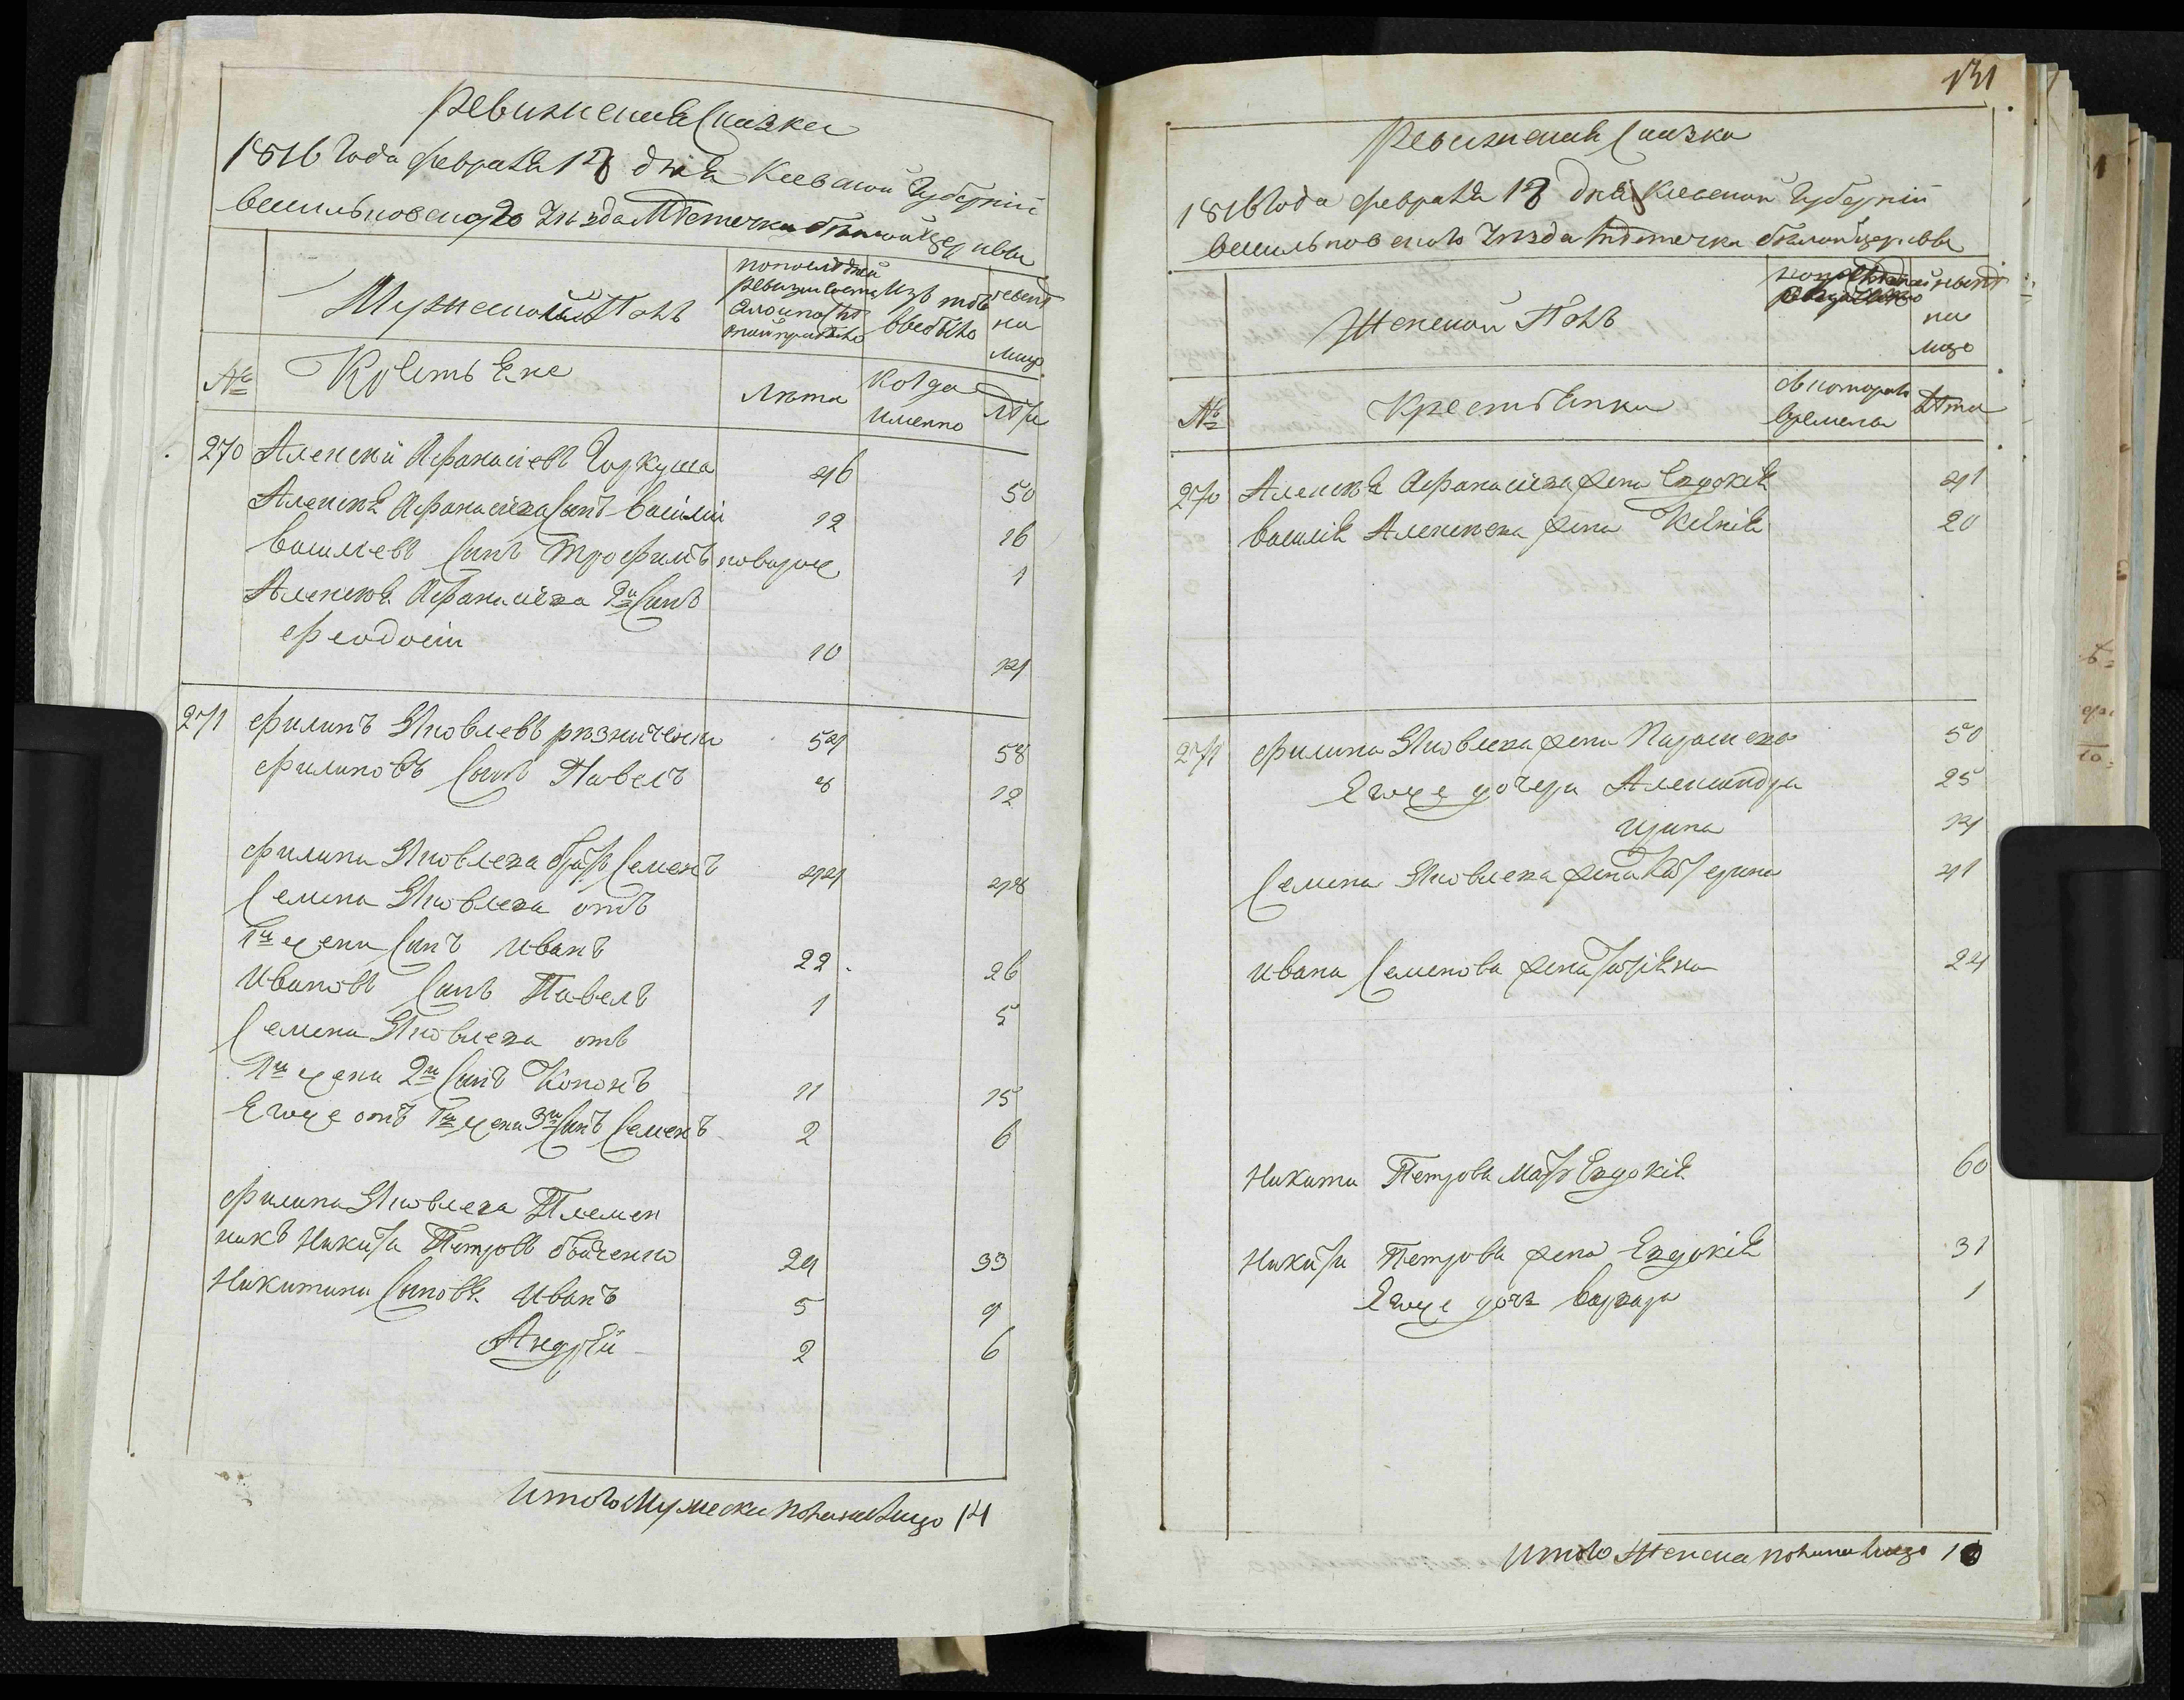 Ревижская Сказка
1816 Года февраля 18 дня Киевской Губерніи
Васильковского Уезда Местечка белой церкви
Мужеский Полъ
по последней ревизіи состояло и после оной прибыло
Изъ того выбыло
ныне на лицо
№
Крестьяне
Лета
Когда именно
Лета
270 Алексей Афанасіевъ Гаркуша 46 50
Алексея Афанасіева Синъ Василій 12 16
Васильевъ Синъ Трофимъ новорож 1
Алексея Афанасіева 2й Синъ
Феодосій 10 14
271 Филипъ Яковлевъ резниченко 54 58
Филиповъ Синъ Павелъ 8 12
Филипа Яковлева братъ Семенъ 44 48
Семена Яковлева отъ
1й жени Синъ Иванъ 22 26
Ивановъ Синъ Павелъ 1 5
Семена Яковлева отъ
1й жени 2й Синъ Кононъ 11 15
Егоже отъ 1й жени 3й Синъ Семенъ 2 6
Филипа Яковлева Племен
никъ Никита Петровъ 29 33
Никитини Синовя Иванъ 5 9
Андрей 2 6
Итого Мужеска пола на лицо 14
131
Ревижская Сказка
1816 Года февраля 18 дня Киевской Губерніи
Васильковского Уезда Местечка белой церкви
Женской Полъ
ныне на лицо
№
Крестьянки
съ которого времени
Лета
270 Алексея Афанасіева жена Евдокія 41
Василія Алексеева жена Ксенія 20
271 Филипа Яковлева жена Параскева 50
Егоже дочери Александра 25
Ирина 14
Семена Яковлева жена Катерина 41
Ивана Семенова жена Татіяна 24
Никити Петрова Мать Евдокія 60
Никити Петрова жена Евдокія 31
Егоже дочь Варвара 1
Итого Женска пола на лицо 10